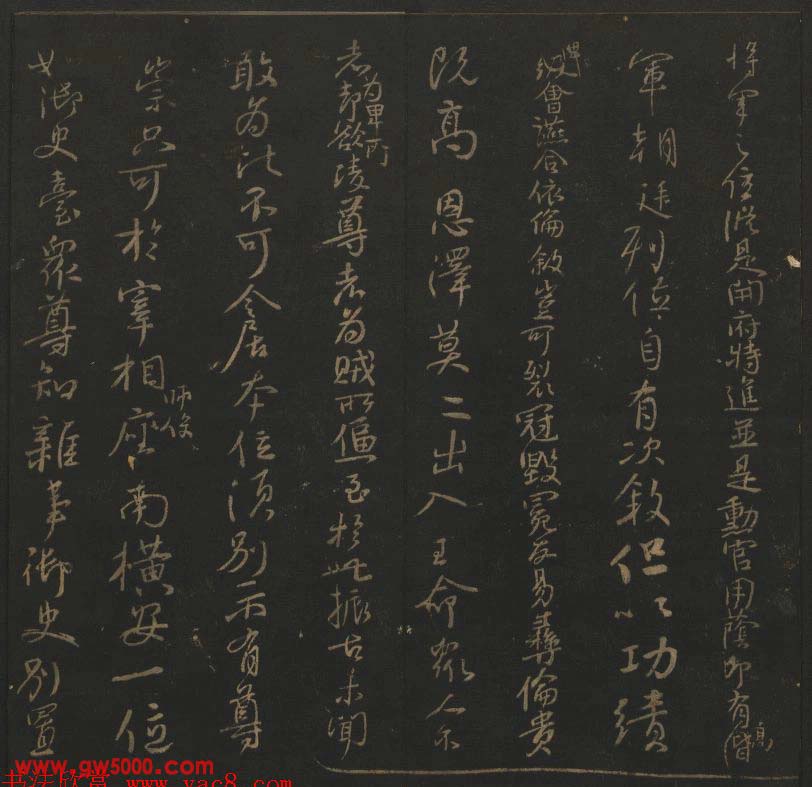 將軍之位縱是開府特進並是勳官用蔭即有高階
軍朝廷列位自有次敘但以功績
會讌合依倫敘豈可裂冠毀冕反易彝倫貴
既高恩澤莫二出入王命眾人不
者為卑所却欲凌尊者為賊所偪至於此振古未聞
敢為比不可令居本位須別示有尊
崇只可於宰相師保座南橫安一位
如御史臺眾尊知雜事御史別置
www.gw5000.com
书法欣赏 www.yac8.com